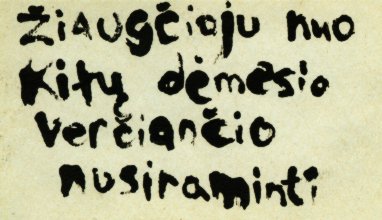 Žiaugčioju nuo
Kitų dėmesio
verčiančio
nusiraminti